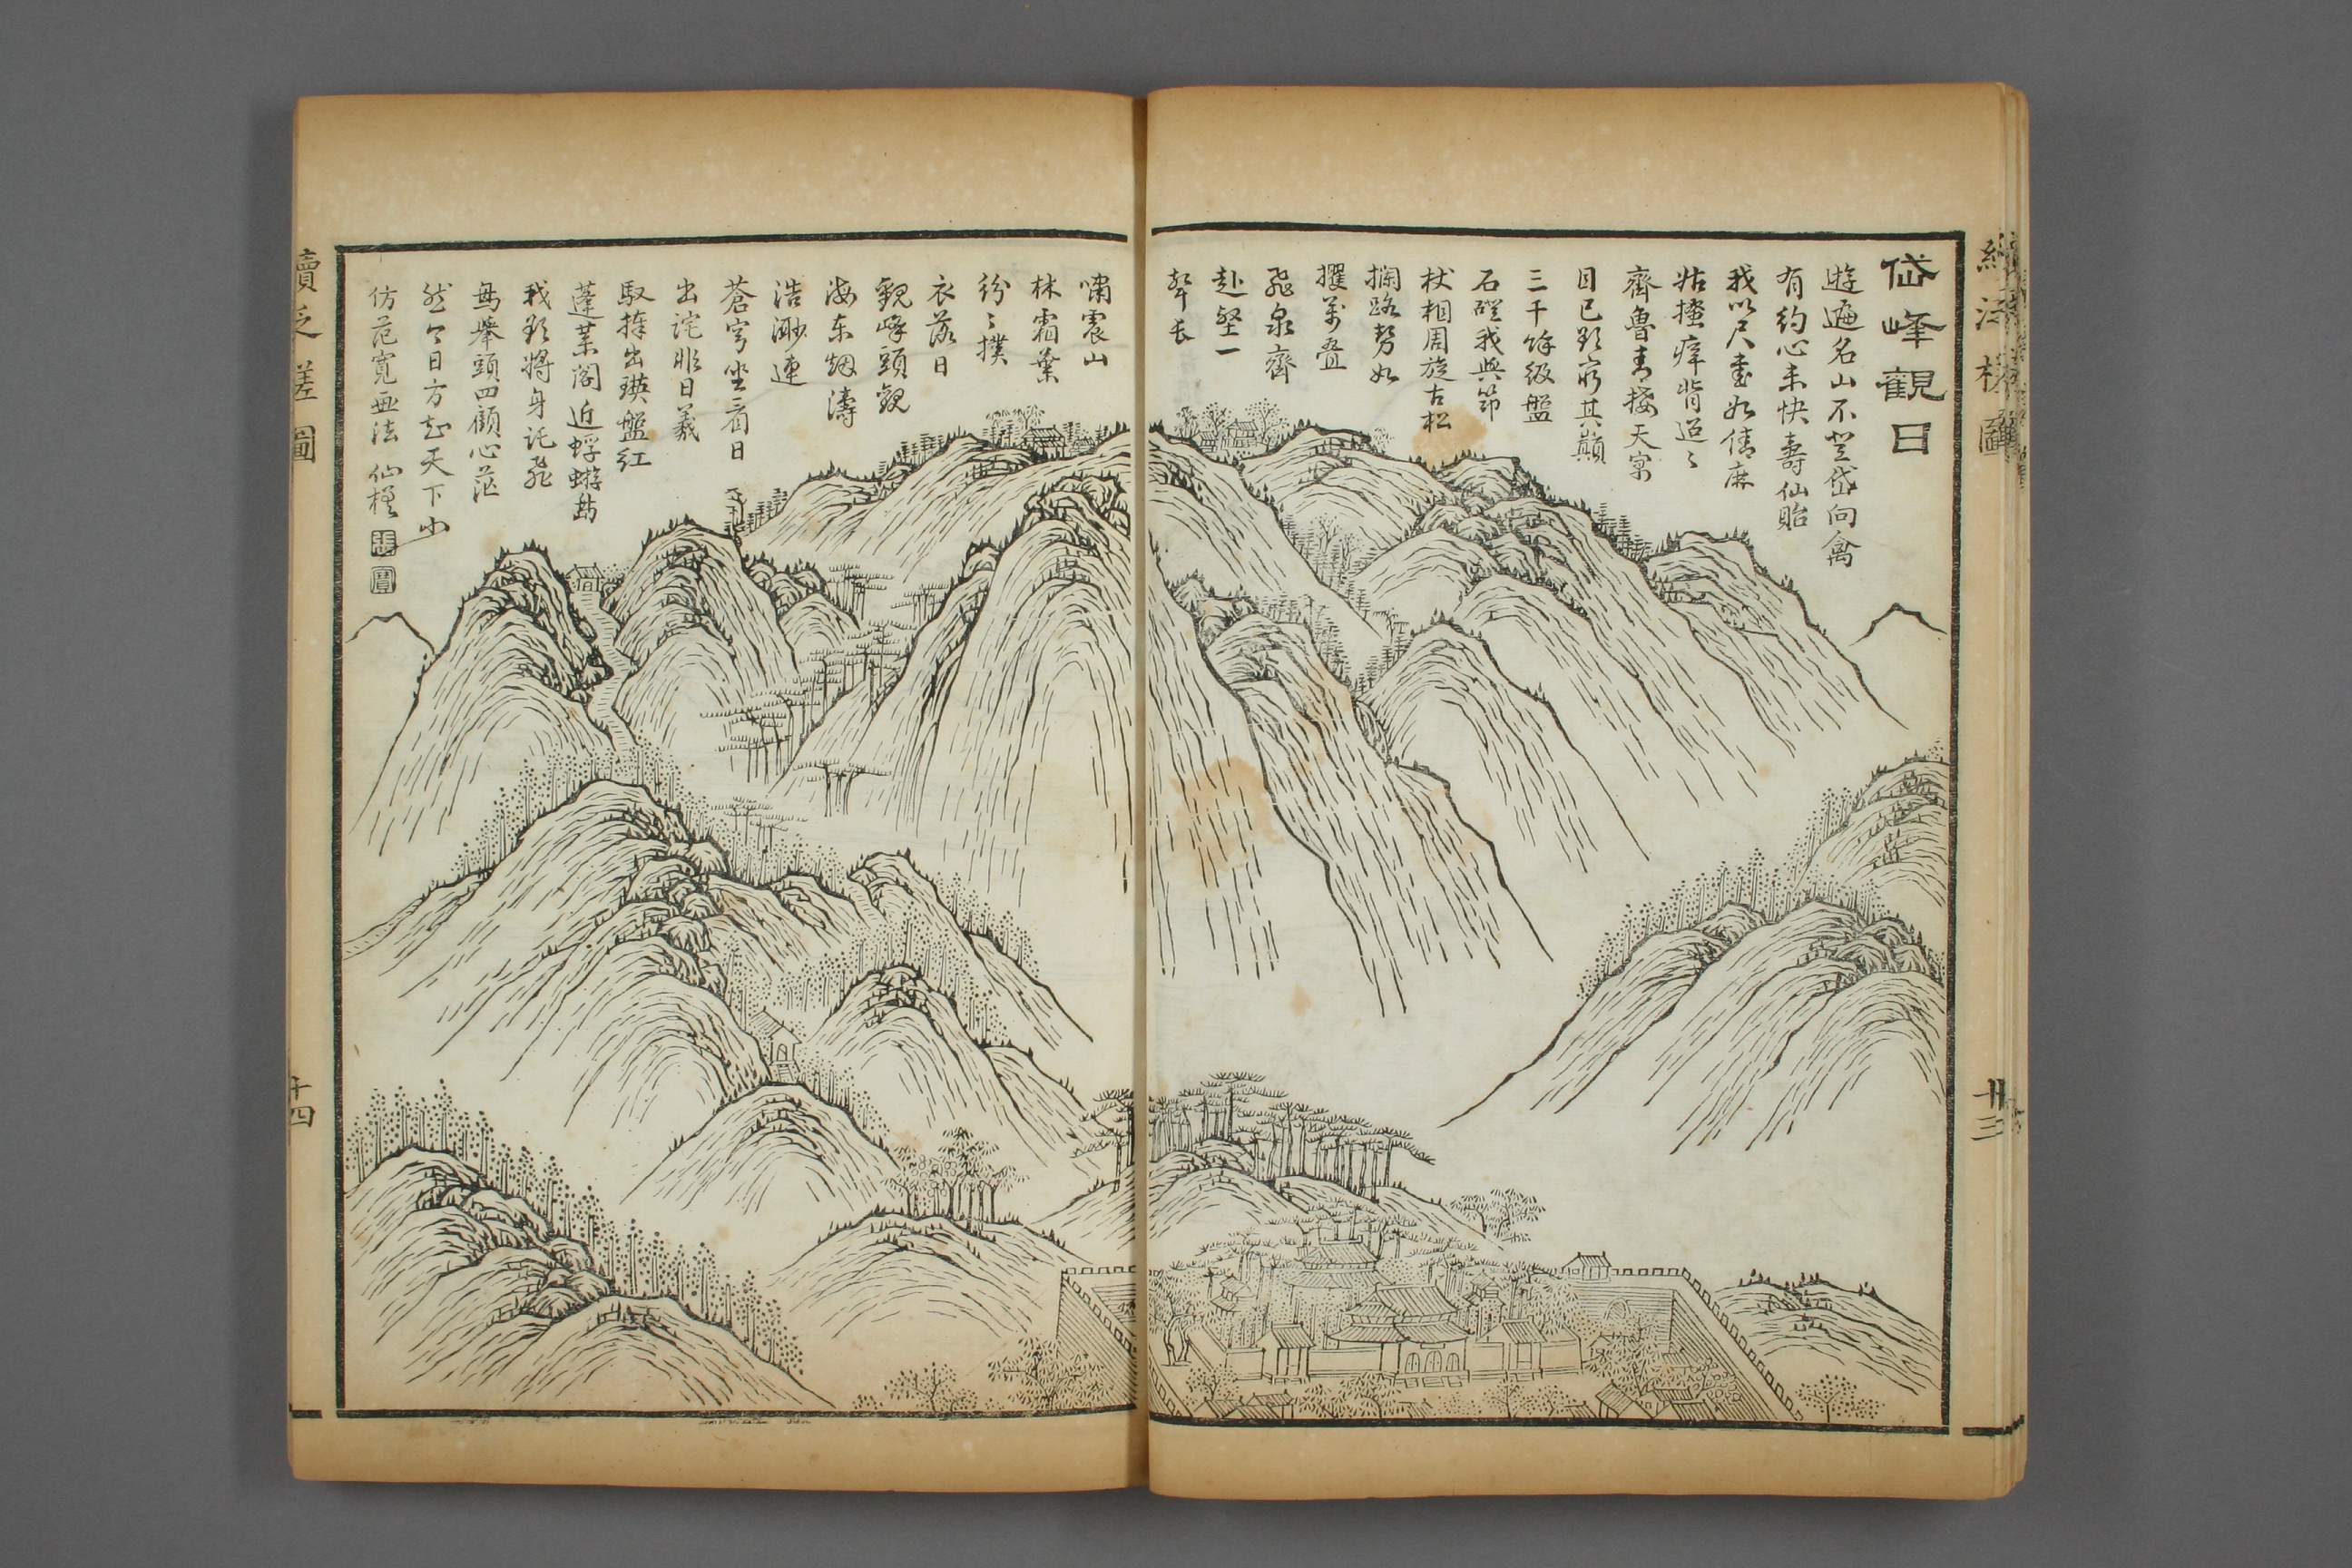 岱峰觀日
遊遍名山不登岱向禽
有約心未快壽仙貽
我以尺畫如倩麻
姑搔痒背迢〻
齊魯青接天寥
目已欲窮其巔
三千餘级盤
石磴我與笻
杖相周旋古松
攔路勢如
攫萬叠
飛泉齊
赴壑一
聲長
嘯震山
林霜葉
紛〻撲
衣落日
觀峰頭觀
海东烟濤
浩渺連
蒼穹坐看日
出詫眂日羲
馭捧出瑛盤红
蓬莱阁近蜉蝣島
我欲將身託飛
舉頭四顧心茫
然今日方知天下小
仿范寬画法 仙槎
張
寶
續泛槎圖
廿三
續泛槎圖
廿四